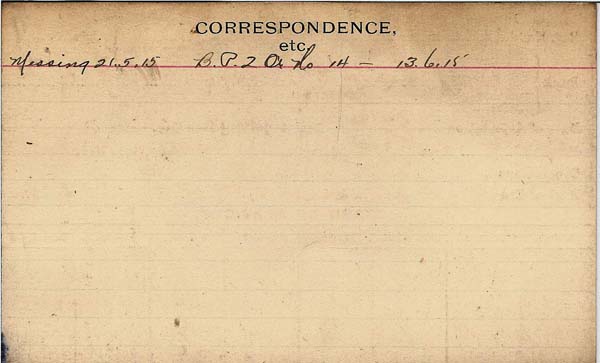 CORRESPONDENCE,
etc.
Missing 21.5.15 B.P. 2 Or No 14 – 13.6.15